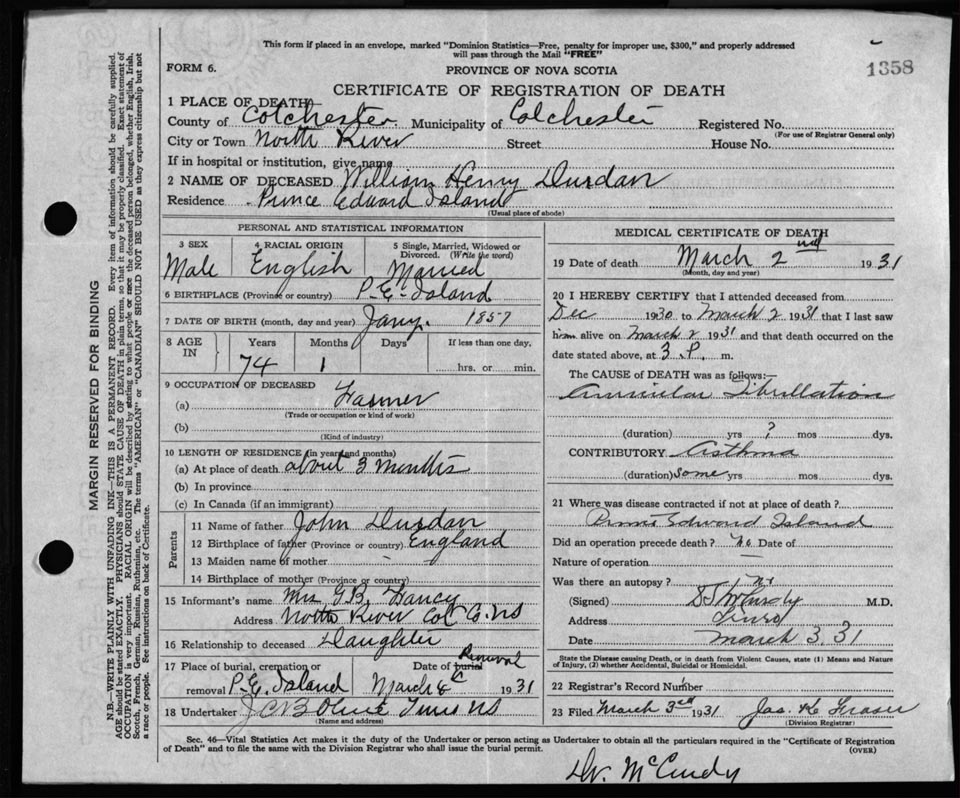 This form if placed in an envelope, marked "Dominion Statistics—Free, penalty for improper use, $300," and properly addressed
will pass through the Mail "FREE"
FORM 6.
PROVINCE OF NOVA SCOTIA
1358
CERTIFICATE OF REGISTRATION OF DEATH
1 PLACE OF DEATH—
County of Colchester Municipality of Colchester Registered No.
(For use of Registrar General only)
City or Town North River Street House No.
If in hospital or institution, give name
2 NAME OF DECEASED William Henry Durdan
Residence Prince Edward Island
(Usual place of abode)
PERSONAL AND STATISTICAL INFORMATION
3 SEX
Male
4 RACIAL ORIGIN
English
5 Single, Married, Widowed or
Divorced. (Write the word)
Married
6 BIRTHPLACE (Province or country) P.E. Island
7 DATE OF BIRTH (month, day and year) Jany. 1857
8 AGE IN Years Months Days If less than one day.
74 1 hrs. or min.
9 OCCUPATION OF DECEASED
(a) Farmer
(Trade or occupation or kind of work)
(b)
(Kind of industry)
10 LENGTH OF RESIDENCE (in years and months)
(a) At place of death about 3 months
(b) In province
(c) In Canada (if an immigrant)
Parents
11 Name of father John Durdan
12 Birthplace of father (Province or country) England
13 Maiden name of mother
14 Birthplace of mother (Province or country)
15 Informant's name Mrs G.B. Yancy
Address North River Col Co. NS
16 Relationship to deceased Daughter
17 Place of burial, cremation or Date of burial Removal
removal P.E. Island March 1931
18 Undertaker NS
(Name and address)
MEDICAL CERTIFICATE OF DEATH
19 Date of death March 2nd 1931
(Month, day and year)
20 I HEREBY CERTIFY that I attended deceased from
Dec 1930 to March 2 1931 that I last saw
him alive on March 2 1931 and that death occurred on the
date stated above, at 3 P. m.
The CAUSE of DEATH was as follows:—
Auricular Fibrillation
(duration) yrs ? mos dys.
CONTRIBUTORY Asthma
(duration) Some yrs mos dys.
21 Where was disease contracted if not at place of death?
Prince Edward Island
Did an operation precede death? No Date of
Nature of operation
Was there an autopsy? No
(Signed) McCurdy M.D.
Address Truro
Date March 3, 31
State the Disease causing Death, or in death from Violent Causes, state (1) Means and Nature
of Injury, (2) whether Accidental, Suicidal or Homicidal.
22 Registrar's Record Number
23 Filed March 3rd 1931 Jas. K. Fraser
(Division Registrar)
Sec. 46—Vital Statistics Act makes it the duty of the Undertaker or person acting as Undertaker to obtain all the particulars required in the "Certificate of Registration
of Death" and to file the same with the Division Registrar who shall issue the burial permit.
(OVER)
Dr. McCurdy
MARGIN RESERVED FOR BINDING
N.B.—WRITE PLAINLY WITH UNFADING INK—THIS IS A PERMANENT RECORD. Every item of information should be carefully supplied.
AGE should be stated EXACTLY. PHYSICIANS should STATE CAUSE OF DEATH in plain terms, so that it may be properly classified. Exact statement of
OCCUPATION is very important. RACIAL ORIGIN will be described by stating to what people or race the deceased person belonged, whether English, Irish,
Scotch, French, German, Russian, Ruthenian, etc. The terms "AMERICAN" or "CANADIAN" SHOULD NOT BE USED as they express citizenship but not
a race or people. See instructions on back of Certificate.